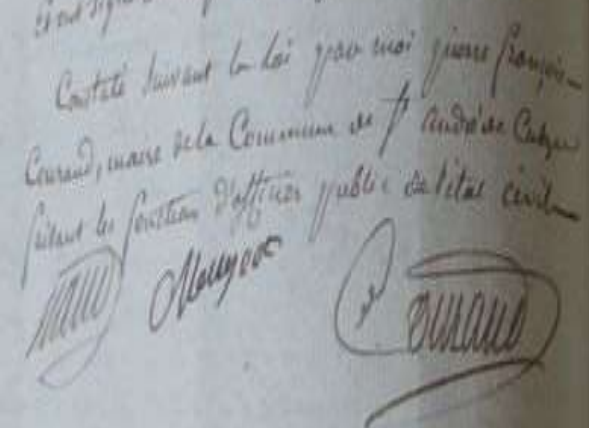 et ont signé
Constaté Suivant la loi par moi pierre françois
Couraud, maire de la Commune de St André de Cubzac
faisant les fonction d'officier public de l'état civil
Couraud